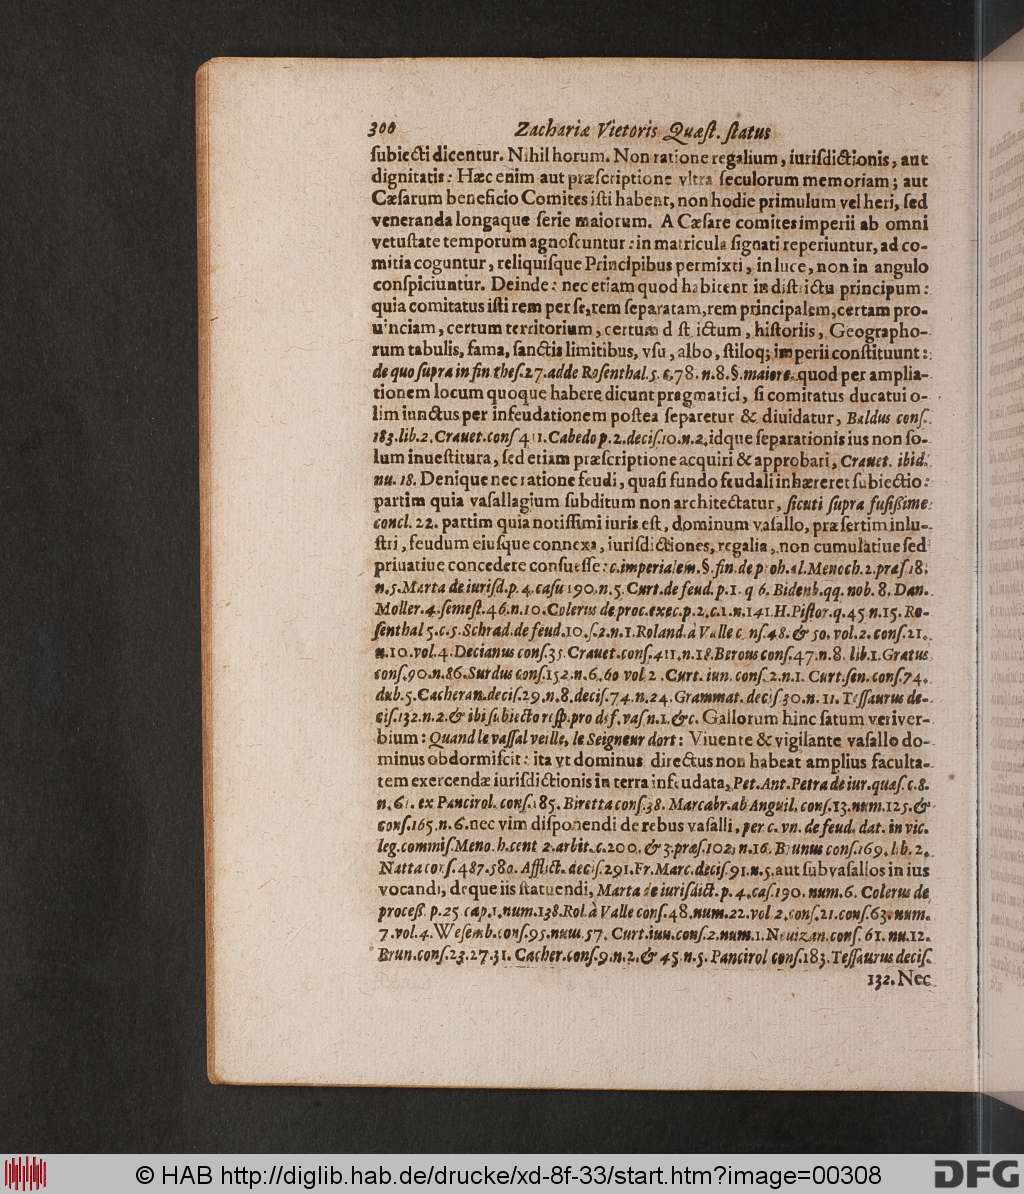 300 Zachariæ Vietoris Quæſt. ſtatus
ſubiecti dicentur. Nihil horum. Non ratione regalium, iuriſdictionis, aut
dignitatis: Hæc enim aut præſcriptione vltra ſeculorum memoriam; aut
Cæſarum beneficio Comites iſti habent, non hodie primulum vel heri, ſed
veneranda longaque ſerie maiorum. A Cæſare comites imperii ab omni
vetuſtate temporum agnoſcuntur: in matricula ſignati reperiuntur, ad co-
mitia coguntur, reliquiſque Principibus permixti, in luce, non in angulo
conſpiciuntur. Deinde: nec etiam quod habitent in diſtrictu principum:
quia comitatus iſti rem per ſe, rem ſeparatam, rem principalem, certam pro-
uinciam, certum territorium, certum diſtrictum, hiſtoriis, Geographo-
rum tabulis, fama, ſanctis limitibus, vſu, albo, ſtiloq; imperii conſtituunt:
de quo ſupra in fin theſ. 27. adde Roſenthal. 5. c. 78. n. 8. §. maiore. quod per amplia-
tionem locum quoque habere dicunt pragmatici, ſi comitatus ducatui o-
lim iunctus per infeudationem poſtea ſeparetur & diuidatur, Baldus conſ.
183. lib. 2. Crauet. conſ 411. Cabedo p. 2. deciſ. 10. n. 2. idque ſeparationis ius non ſo-
lum inueſtitura, ſed etiam præſcriptione acquiri & approbari, Crauet. ibid.
nu. 18. Denique nec ratione feudi, quaſi fundo feudali inhæreret ſubiectio:
partim quia vaſallagium ſubditum non architectatur, ſicuti ſupra fuſißime
concl. 22. partim quia notiſſimi iuris eſt, dominum vaſallo, præſertim inlu-
ſtri, feudum eiuſque connexa, iuriſdictiones, regalia, non cumulatiue ſed
priuatiue concedere conſueſſe: c. imperialem. §. fin. de proh. al. Menoch. 2. præſ 18.
n. 5. Marta de iuriſd. p. 4. caſu 190. n. 5. Curt. de feud. p. 1. q 6. Bidenb. qq. nob. 8. Dan.
Moller. 4. ſemeſt. 46. n. 10. Colerus de proc. exec. p. 2. c. 1. n. 141. H. Piſtor. q. 45 n. 15. Ro-
ſenthal 5. c. 5. Schrad. de feud. 10. ſ. 2. n. 1. Roland. à Valle conſ. 48. & 50. vol. 2. conſ. 21.
n. 10. vol. 4. Decianus conſ. 35. Crauet. conſ. 411. n. 18. Berous conſ. 47. n. 8. lib. 1. Gratus
conſ. 90. n. 86. Surdus conſ. 152. n. 6. 60 vol 2. Curt. iun. conſ. 2. n. 1. Curt. ſen. conſ. 74.
dub. 5. Cacheran. deciſ. 29. n. 8. deciſ. 74. n. 24. Grammat. deciſ 30. n. 11. Teſſaurus de-
ciſ. 132. n. 2. & ibi ſubiecto reſp. pro deſ. vaſ n. 1. &c. Gallorum hinc ſatum veriver-
bium: Quand le vaſſal veille, le Seigneur dort: Viuente & vigilante vaſallo do-
minus obdormiſcit: ita vt dominus directus non habeat amplius faculta-
tem exercendæ iuriſdictionis in terra infeudata, Pet. Ant. Petra de iur. quæſ. c. 8.
n. 61. ex Pancirol. conſ. 185. Biretta conſ. 38. Marcabr. ab Anguil. conſ. 13. num. 125. &
conſ. 165. n. 6. nec vim diſponendi de rebus vaſalli, per c. vn. de feud. dat. in vic.
leg. commiſ. Meno. h. cent 2. arbit. c. 200. & 3. præſ. 102. n. 16. Brunus conſ. 169. lib. 2.
Natta conſ. 487. 580. Afflict. deciſ. 291. Fr. Marc. deciſ. 91. n. 5. aut ſubvaſallos in ius
vocandi, deque iis ſtatuendi, Marta de iuriſdict. p. 4. caſ. 190. num. 6. Colerus de
proceſſ. p. 25 cap. 1. num. 138. Rol. à Valle conſ. 48. num. 22. vol 2. conſ. 21. conſ. 63. num.
7. vol. 4. Weſemb. conſ. 95. num. 57. Curt. iun. conſ. 2. num. 1. Neuizan. conſ. 61. nu. 12.
Brun. conſ. 23. 27. 31. Cacher. conſ. 9. n. 2. & 45. n. 5. Pancirol conſ. 183. Teſſaurus deciſ.
132. Nec
© HAB http://diglib.hab.de/drucke/xd-8f-33/start.htm?image=00308
DFG